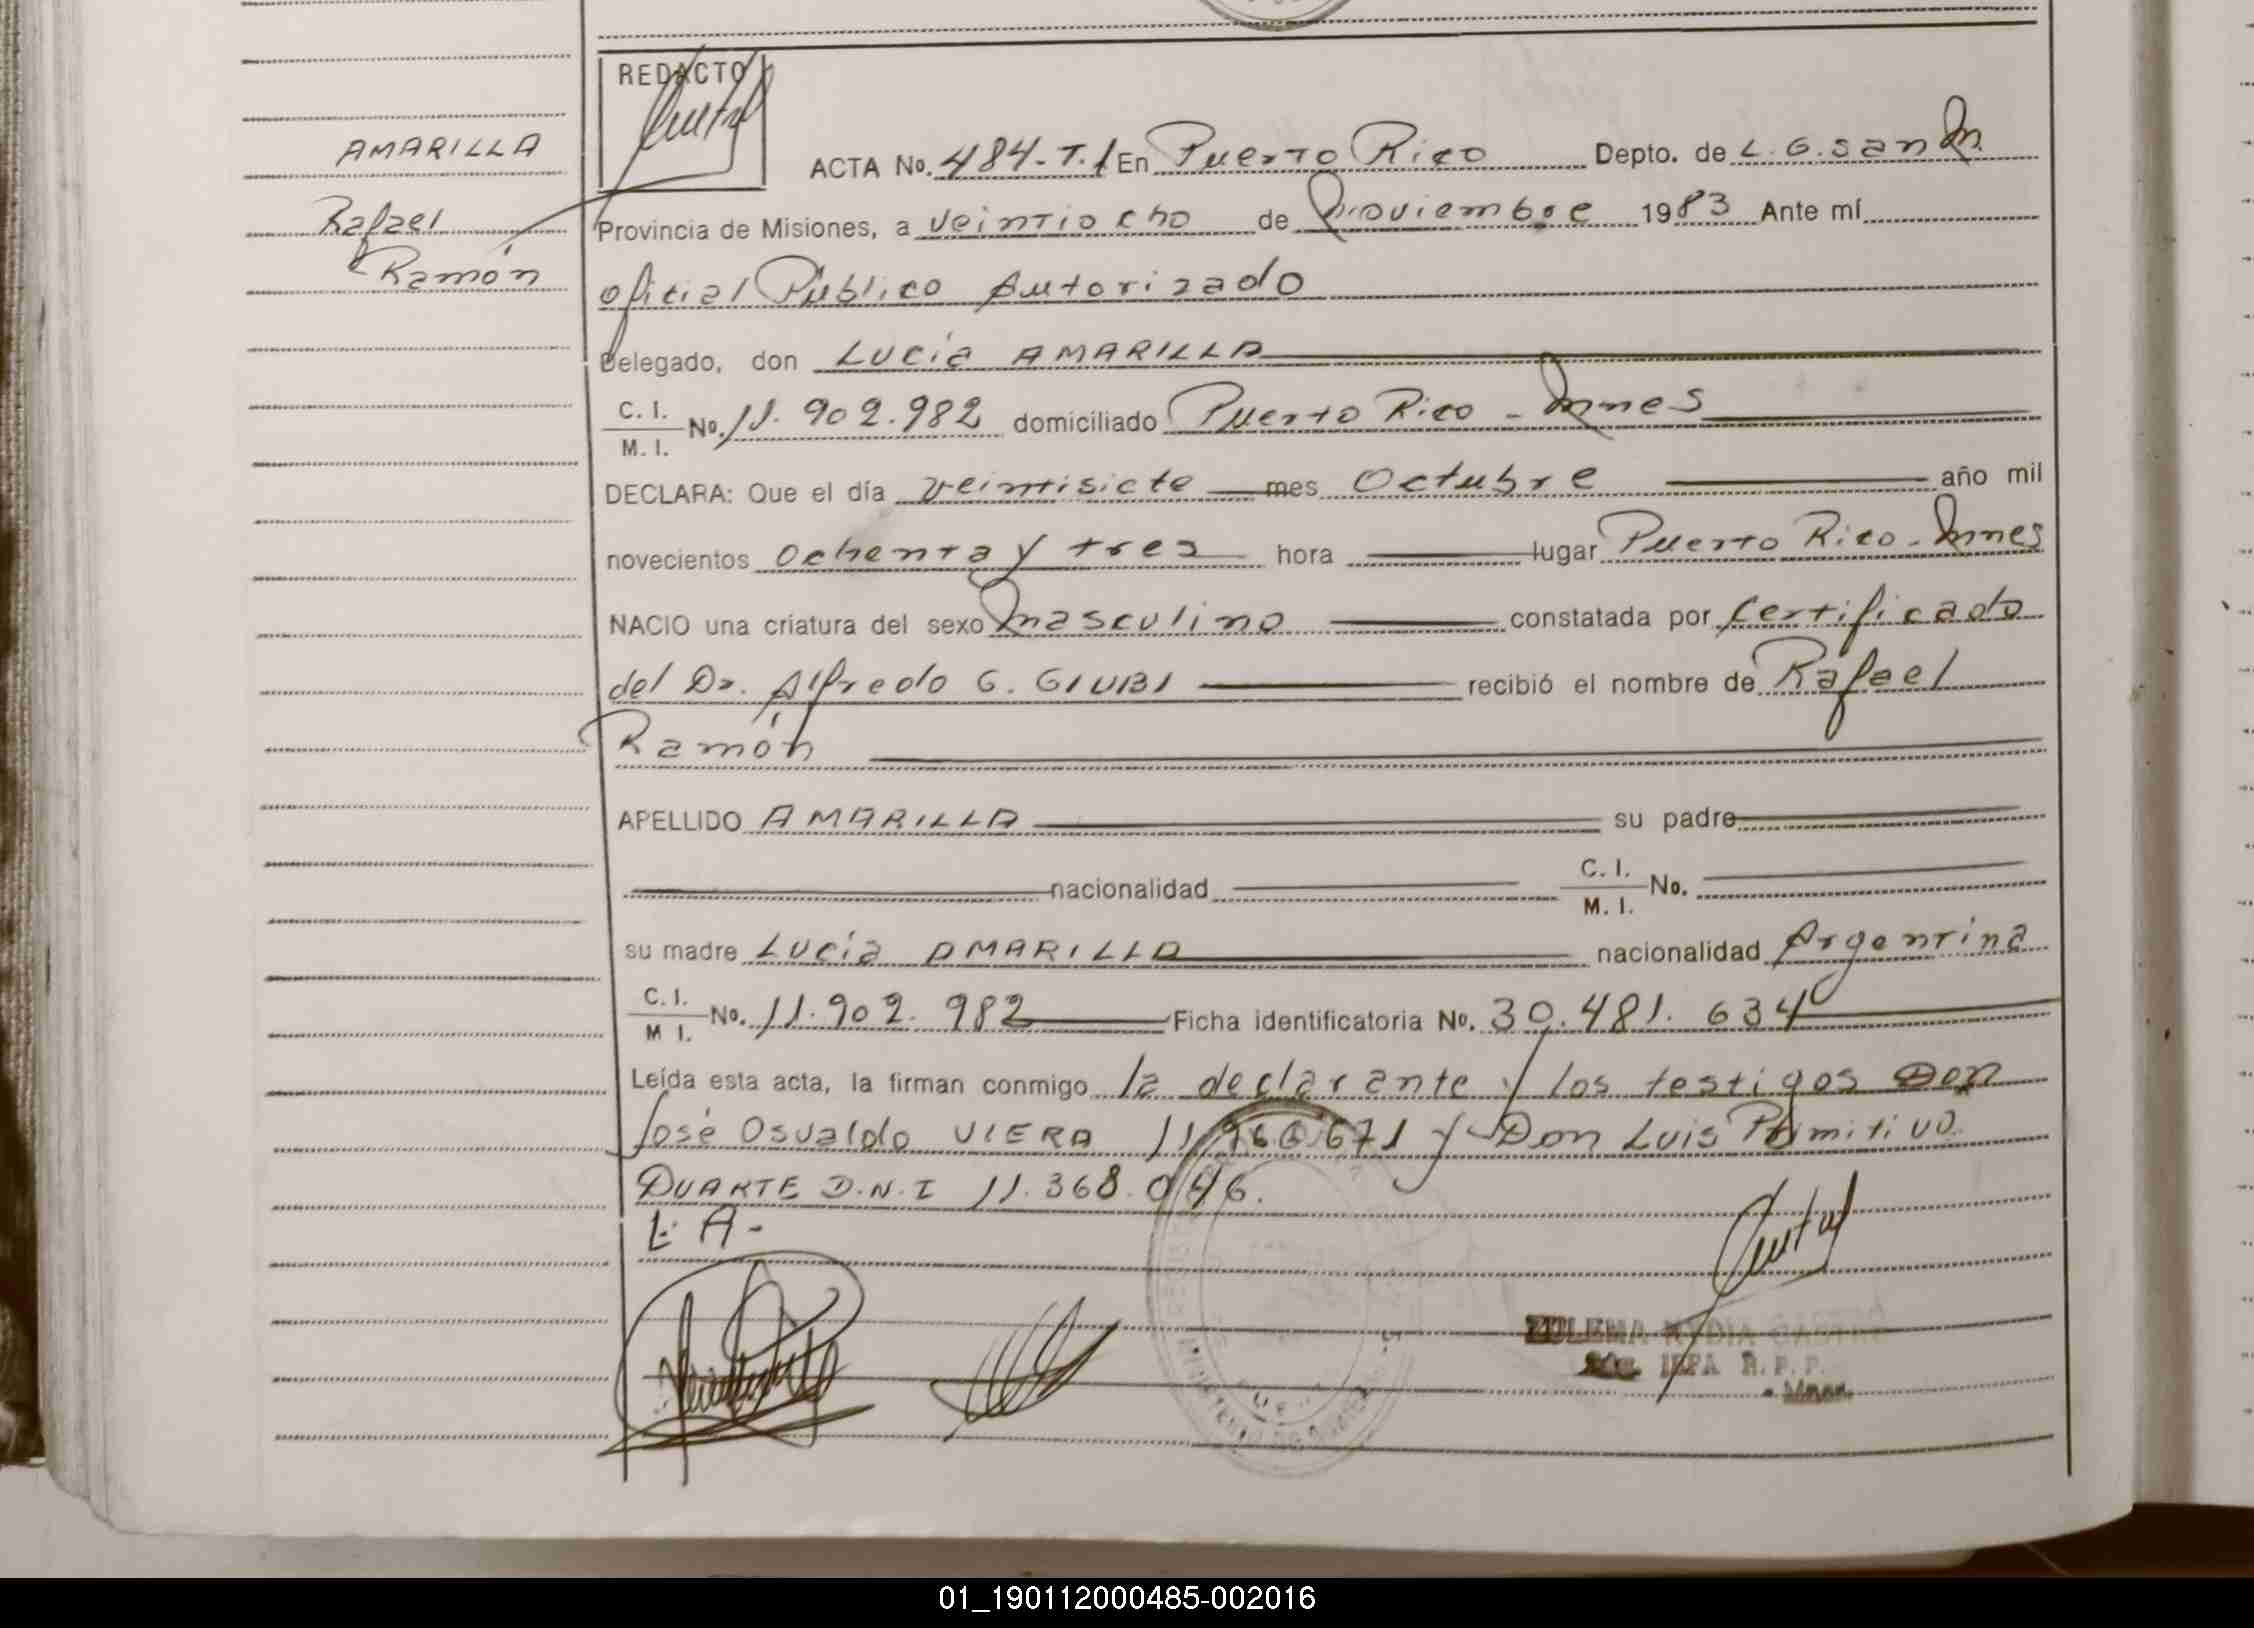 REDACTO
AMARILLA
Rafael
Ramón
ACTA No. 484-T.1 En Puerto Rico Depto. de L. G. San M.
Provincia de Misiones, a veintiocho de Noviembre 1983 Ante mí
oficial Público Autorizado
Delegado, don Lucía AMARILLA
C. I.
M. I. No. 11.902.982 domiciliado Puerto Rico - Mnes
DECLARA: Que el día veintisiete mes Octubre año mil
novecientos ochenta y tres hora lugar Puerto Rico - Mnes
NACIO una criatura del sexo masculino constatada por Certificado
del Dr. Alfredo G. GIUBI recibió el nombre de Rafael
Ramón
APELLIDO AMARILLA su padre
nacionalidad C. I.
M. I. No.
su madre Lucía AMARILLA nacionalidad Argentina
C. I.
M I. No. 11.902.982 Ficha identificatoria No. 30.481.634
Leída esta acta, la firman conmigo la declarante y los testigos Don
José Osvaldo VIERA 11.966.671 y Don Luis Primitivo
DUARTE D.N.I 11.368.046.
L. A-
ZULEMA NYDIA
R. P. P.
Mnes.
01_190112000485-002016